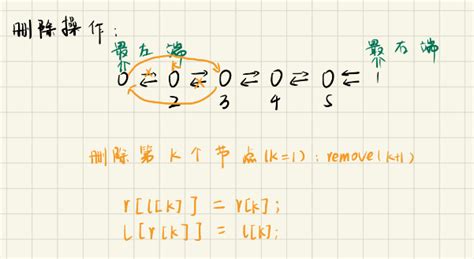 删除操作:
最左端 最右端
0 ⇄ 0 ⇄ 0 ⇄ 0 ⇄ 0 ⇄ 1
k
2 3 4 5
删除第 k 个节点(k=1):remove(k+1)
r[l[k]] = r[k];
l[r[k]] = l[k];